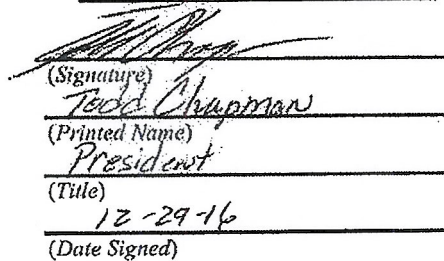 (Signature)
Todd Chapman
(Printed Name)
President
(Title)
12-29-16
(Date Signed)